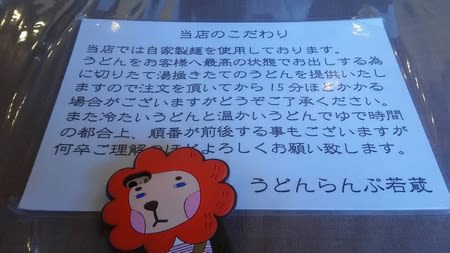 当店のこだわり
当店では自家製麺を使用しております。
うどんをお客様へ最高の状態でお出しする為
に切りたて湯掻きたてのうどんを提供いたし
ますので注文を頂いてから15分ほどかかる
場合がございますがどうぞご了承ください。
また冷たいうどんと温かいうどんでゆで時間
の都合上、順番が前後する事もございますが
何卒ご理解のほどよろしくお願い致します。
うどんらんぷ若蔵